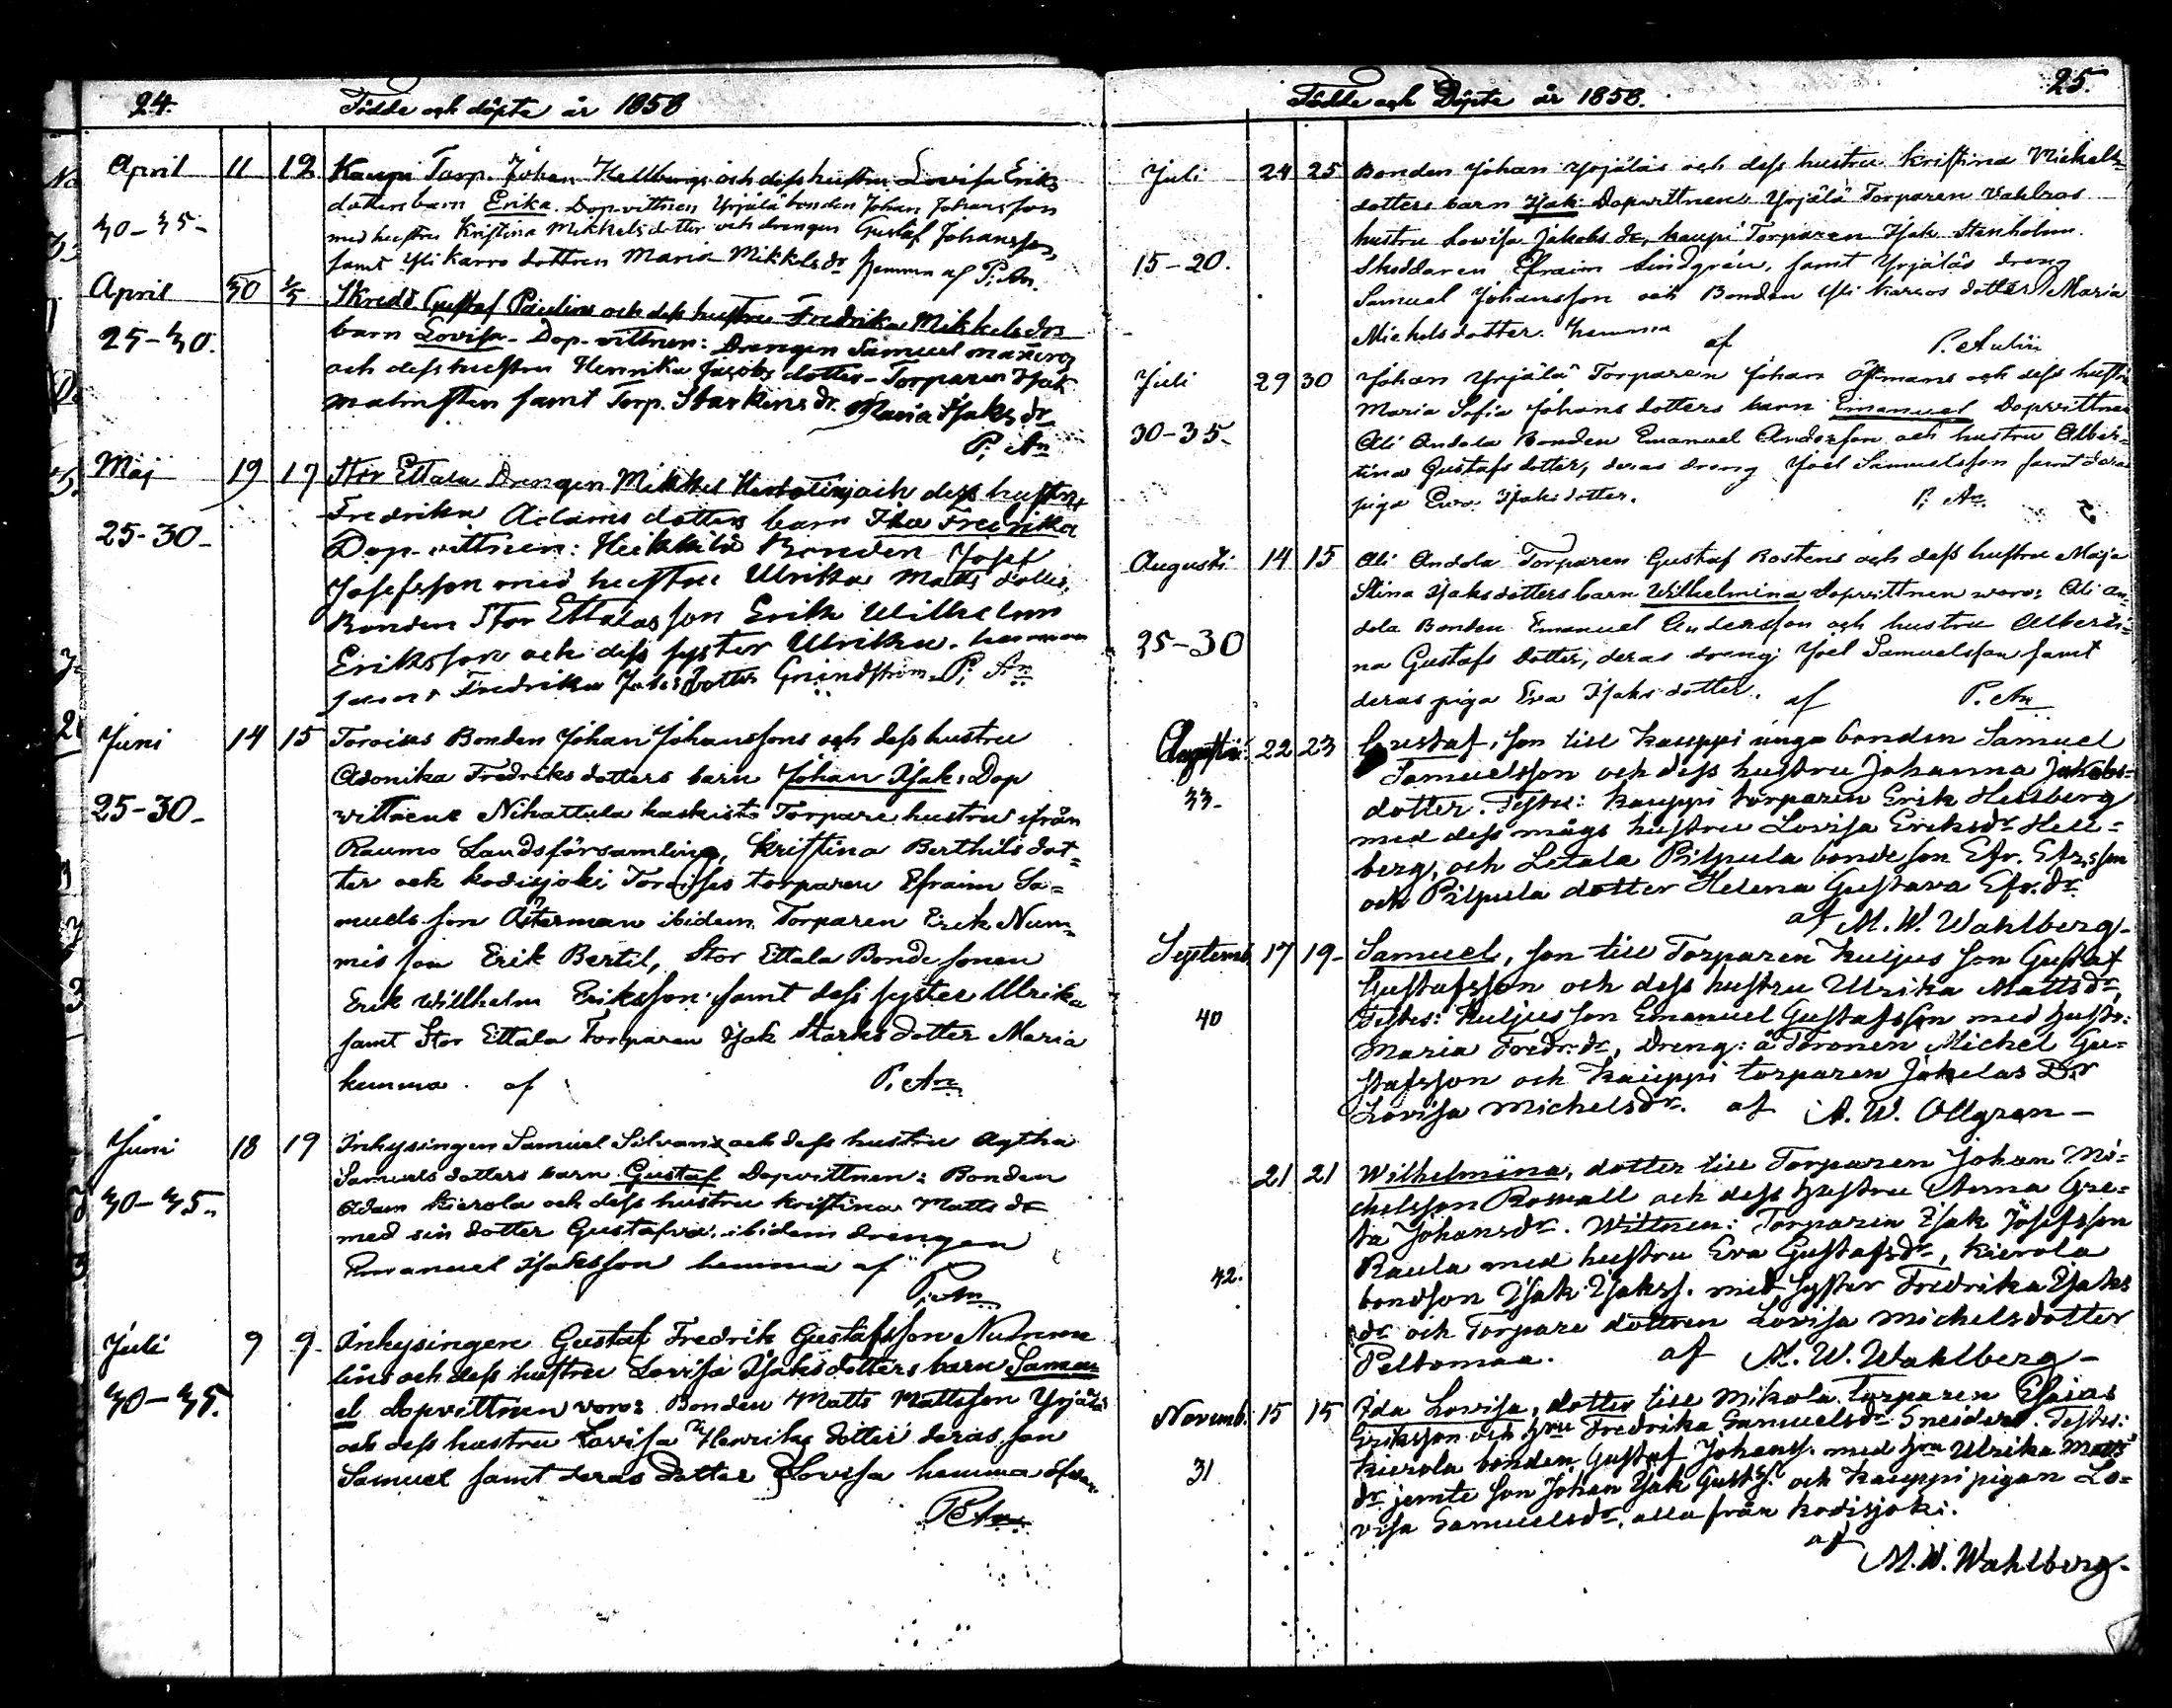 24. Födde och döpte år 1858
April 11 12 Kaupi Torp. Johan Hellbergs och dess hustru Lovisa Eriks
dotters barn Erika. Dop-vittnen Yrjälä bonden Johan Johansson
30-35- med hustru Kristina Mikkelsdotter och drengen Gustaf Johansson,
samt Yli Karro dottren Maria Mikkels dr hemma af P. An.
April 30 1/5 Skredd. Gustaf Paulins och dess hustru Fredrika Mikkels drs
25-30. barn Lovisa - Dop-vittnen: Drengen Samuel
och dess hustru Henrika Jacobs dotter - Torparen Isak
Malmsten samt Torp. Starkens dr. Maria Isaks dr
P. An
Maj 19 17 Stor Ettala Drengen Mikkel och dess hustru
Fredrika Adams dotters barn Ida Fredrika
25-30- Dop-vittnen: Heikkilä Bonden Josef
Josefsson med hustru Ulrika Matts dotter,
Bonden Stor Ettalas son Erik Wilhelm
Eriksson och dess syster Ulrika. hemma
Fredrika dotter Grindström. P. An
Juni 14 15 Toroises Bonden Johan Johanssons och dess hustru
Adonika Fredriks dotters barn Johan Isak: Dop
25-30- vittnene Nihattula kaskisto Torpare hustru ifrån
Raumo Landsförsamling, Kristina Berthils dot-
ter och kodisjoki torparen Efraim Sa-
muels son Österman ibidem. Torparen Erik Num-
mis son Erik Bertil, Stor Ettala Bonde sonen
Erik Willhelm Eriksson samt dess syster Ulrika
samt Stor Ettala Torparen Isak Starks dotter Maria
hemma. af P. An
Juni 18 19 Inhysingen Samuel Silvans och dess hustru Agtha
Samuels dotters barn Gustaf Dopvittnen: Bonden
30-35- Adam Kierola och dess hustru Kristina Matts dr
med sin dotter Gustafva. ibidem drengen
Emanuel Isaksson hemma af
P. An
Juli 9 9- Inhysingen Gustaf Fredrik Gustafsson Numme
lins och dess hustru Lovisa Isaksdotters barn Samu
30-35. el dopvittnen voro: Bonden Matts Mattsson Yrjälä
och dess hustru Lovisa Henriks dotter deras son
Samuel samt deras dotter Lovisa hemma
P. An
Födde och Döpte år 1858. 25.
Juli 24 25 Bonden Johan Yrjäläs och dess hustru Kristina Mickels-
dotters barn Isak. Dopwittnen: Yrjälä Torparen Vahlros
hustru Lovisa Jakobs dr, kaupi Torparen Isak Stenholm.
15-20. Skeddaren Efraim Lindgrén, samt Yrjäläs dreng
Samuel Johansson och Bonden Yli Karros dotter Maria
Michelsdotter. hemma af P. Aulin
Juli 29 30 Johan Yrjälä Torparen Johan Östmans och dess hustru
Maria Sofia Johans dotters barn Emanuel Dopvittnen
30-35- Ali Andola Bonden Emanuel Andersson och hustru Alber-
tina Gustafs dotter, deras dreng Joel Samuelsson samt deras
piga Eva Isaks dotter. P. An
Augusti 14 15 Ali Andola Torparen Gustaf Rostens och dess hustru Maja
Stina Isaksdotters barn Wilhelmina dopvittnen woro: Ali An-
25-30 dola Bonden Emanuel Andersson och hustru Alberti-
na Gustafs dotter, deras dreng Joel Samuelsson samt
deras piga Eva Isaks dotter. af P. An
Augusti 22 23 Gustaf, son till Kauppi unga bonden Samuel
Samuelsson och dess hustru Johanna Jakobs-
33- dotter. Testes: Kauppi torparen Erik Hellberg
med dess mågs hustru Lovisa Eriksdr Hell-
berg, och Letala Pilpula bonde son Efr. Efr.sson
och Pilpula dotter Helena Gustava Efr.dr
af M. W. Wahlberg-
Septemb. 17 19- Samuel, son till Torparen Kuljus son Gustaf
Gustafsson och dess hustru Ulrika Mattsdr,
40 Testes: Kuljus son Emanuel Gustafsson med hustr:
Maria Fredr.dr, Dreng: å Toronen Michel Gu-
stafsson och Kauppi torparen Jakelas Dr
Lovisa Michelsdr. af A. W. Allgren-
21 21 Wilhelmina, dotter till Torparen Johan Mi-
chelsson Rosvall och dess hustru Anna Gre-
ta Johansdr. Wittnen: Torparen Isak Josefsson
Raula med hustru Eva Gustafsdr, Kierola
42. bondson Isak Isakss. med syster Fredrika Isaks
dr och Torpare dottren Lovisa Michelsdotter
Peltomaa. af M. W. Wahlberg-
Novemb. 15 15 Ida Lovisa, dotter till Mikola torparen Esaias
Eriksson och hru Fredrika Samuelsdr Sneiders. Testes:
Kierola bonden Gustaf Johanss. med hru Ulrika Matts
31 dr jemte son Johan Isak Gustss. och Kauppi pigan Lo-
visa Samuelsdr, alla från Kodisjoki.
af
M. W. Wahlberg-